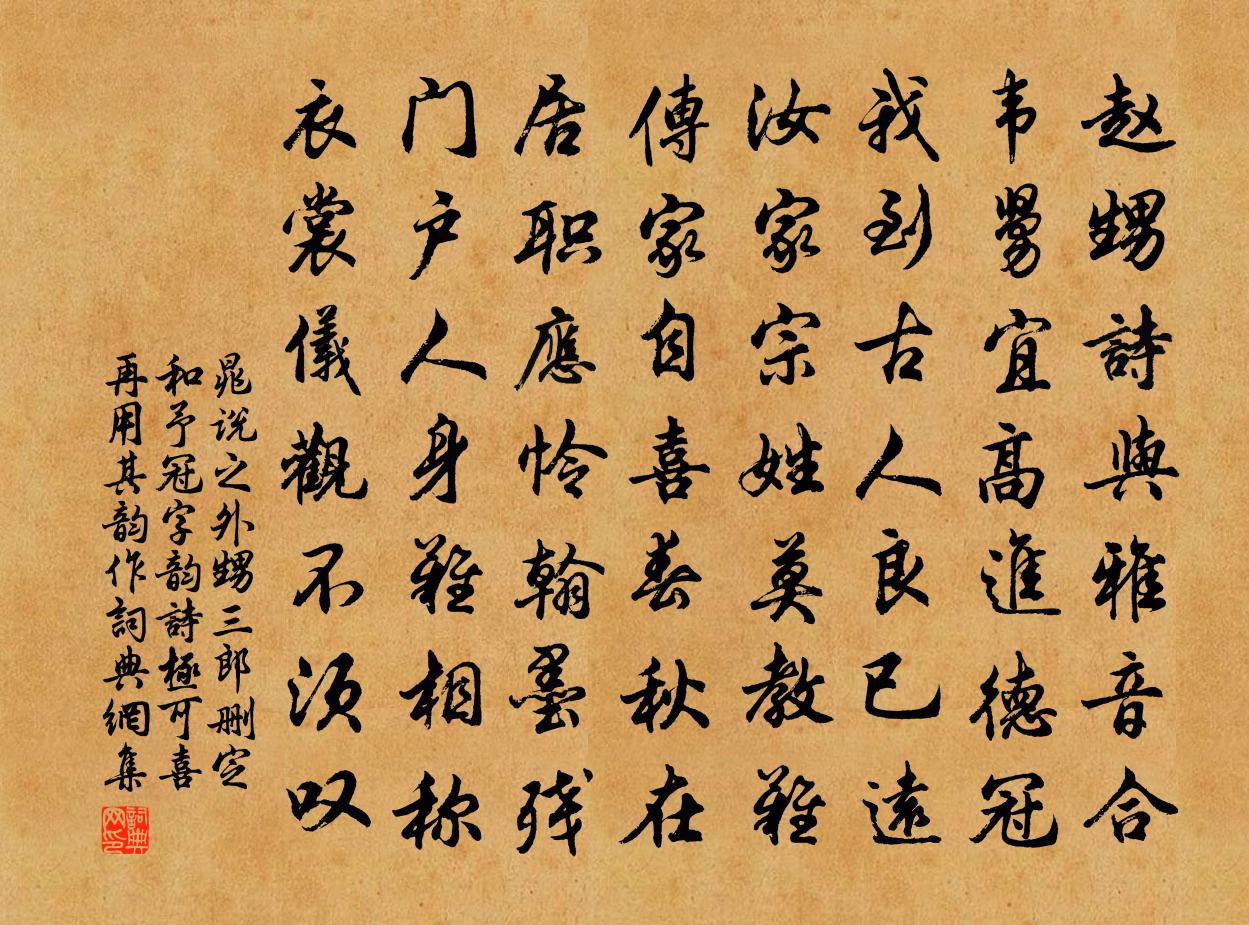 赵甥詩與雅音合
韦舅宜高進德冠
我到古人良已遠
汝家宗姓莫教難
傳家自喜春秋在
居职應怜翰墨残
门户人身難相称
衣裳儀觀不须叹
晁说之外甥三郎删定
和予冠字韵詩極可喜
再用其韵作詞典網集
詞典
网印